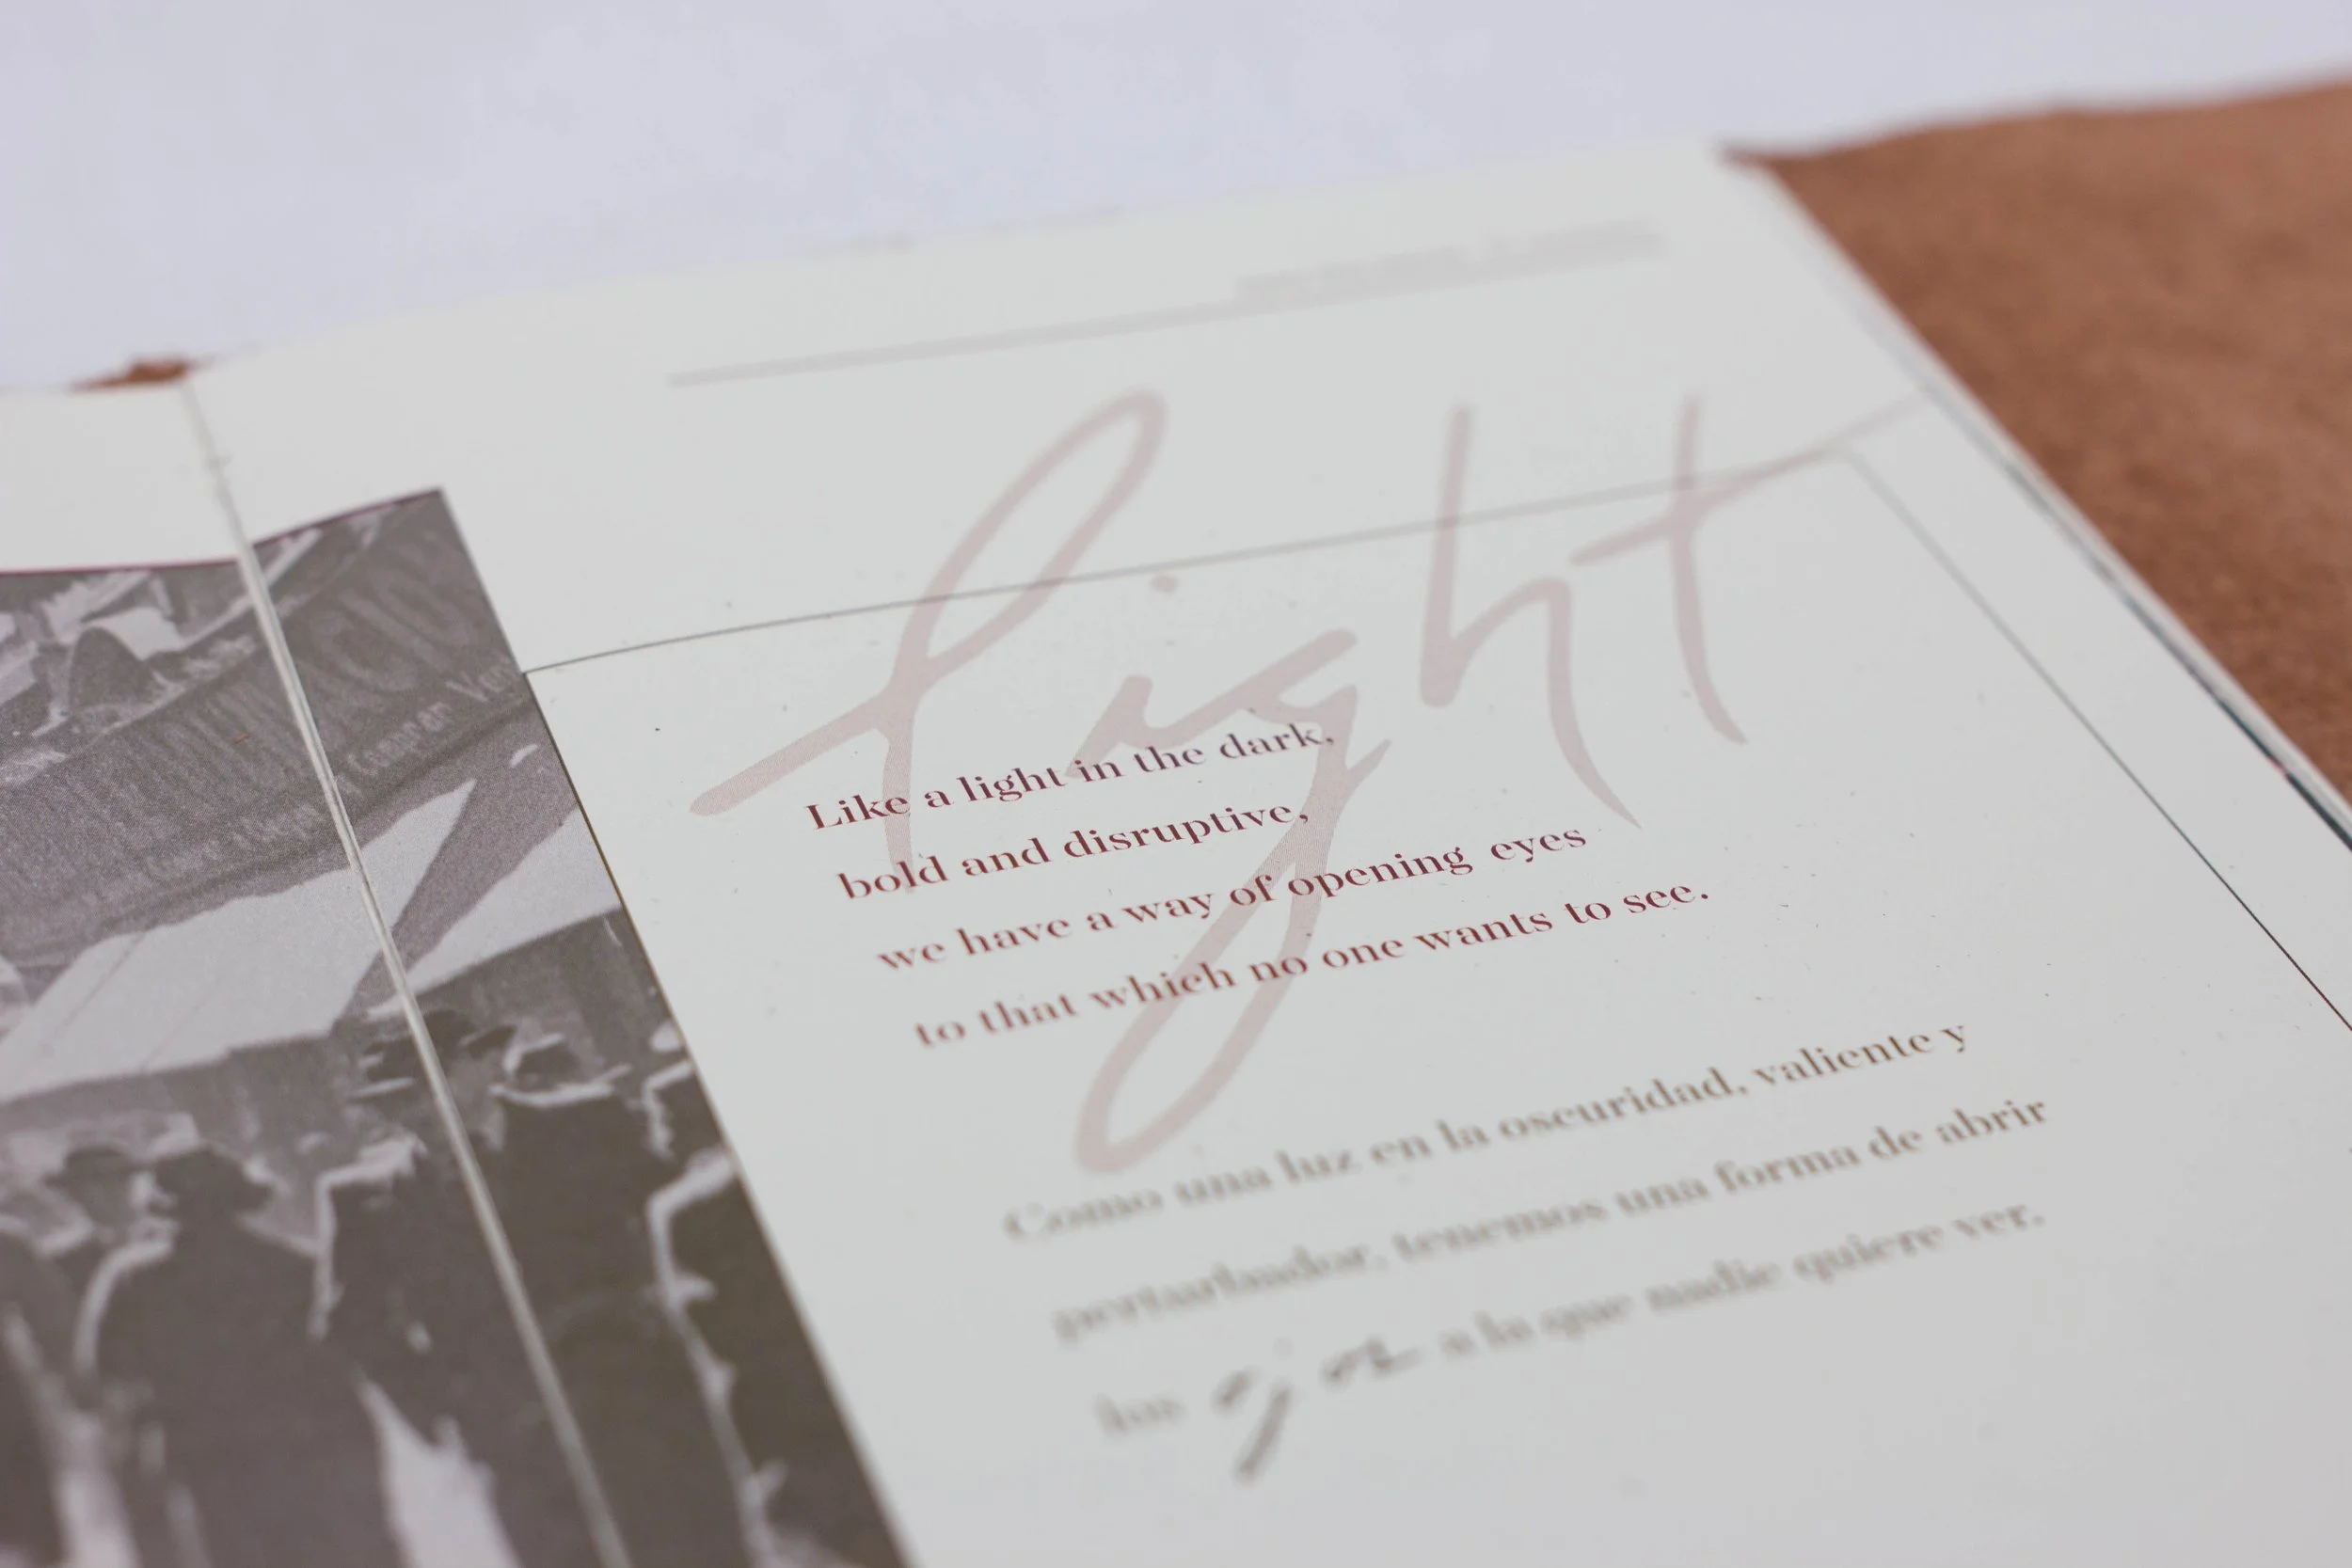 light
Like a light in the dark,
bold and disruptive,
we have a way of opening eyes
to that which no one wants to see.
Como una luz en la oscuridad, valiente y
perturbador, tenemos una forma de abrir
los ojos a lo que nadie quiere ver.